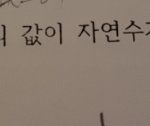 값이 자연수